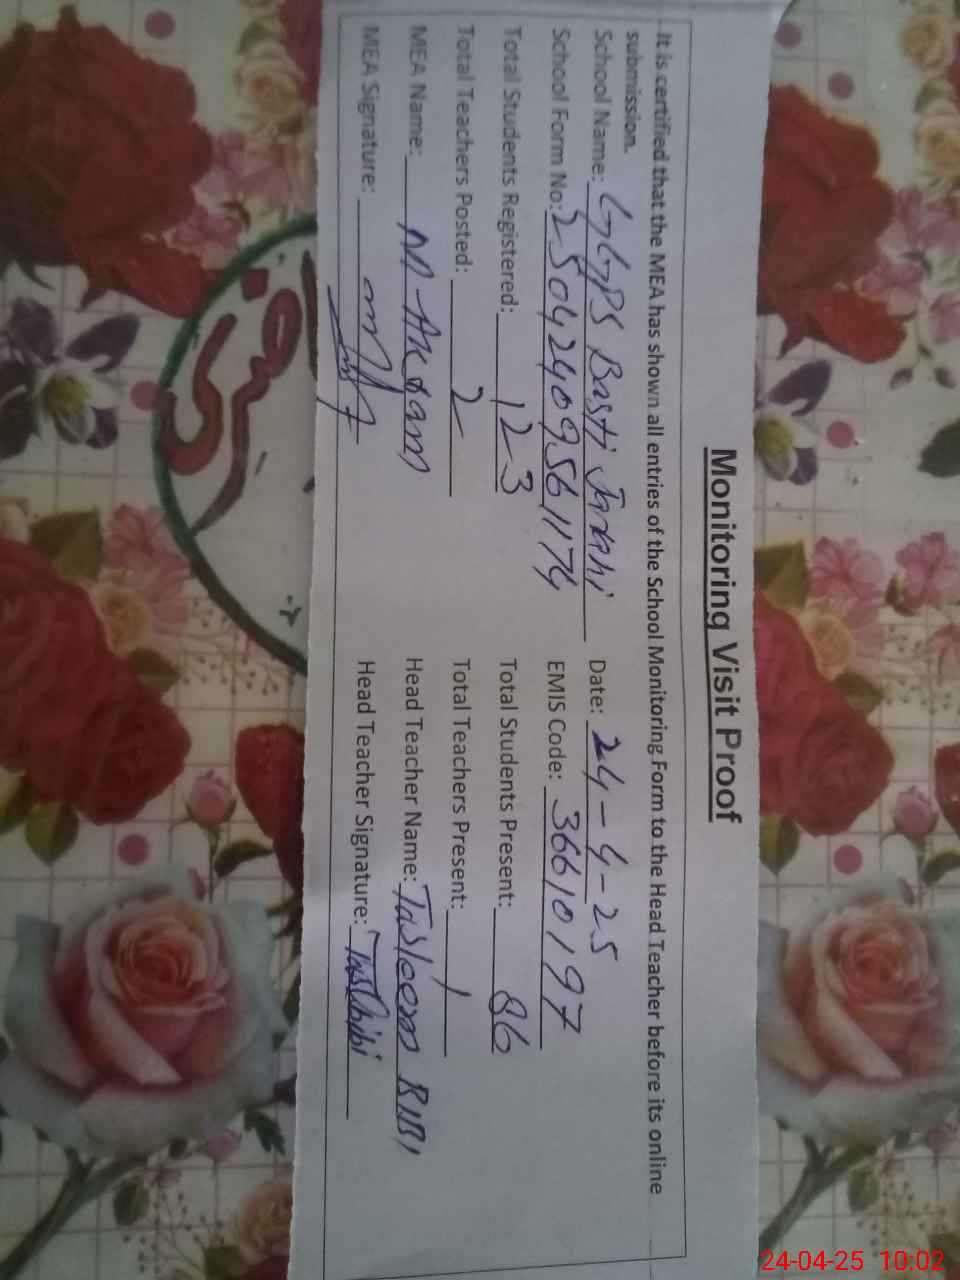 Monitoring Visit Proof
It is certified that the MEA has shown all entries of the School Monitoring Form to the Head Teacher before its online
submission.
School Name: GGPS Basti Date: 24-4-25
School Form No: 25042409561174 EMIS Code: 36610197
Total Students Registered: 123 Total Students Present: 86
Total Teachers Posted: 2 Total Teachers Present: 1
MEA Name: M-Aksam Head Teacher Name: Tasleem BIBI
MEA Signature: Head Teacher Signature: Tasbibi
24-04-25 10:02